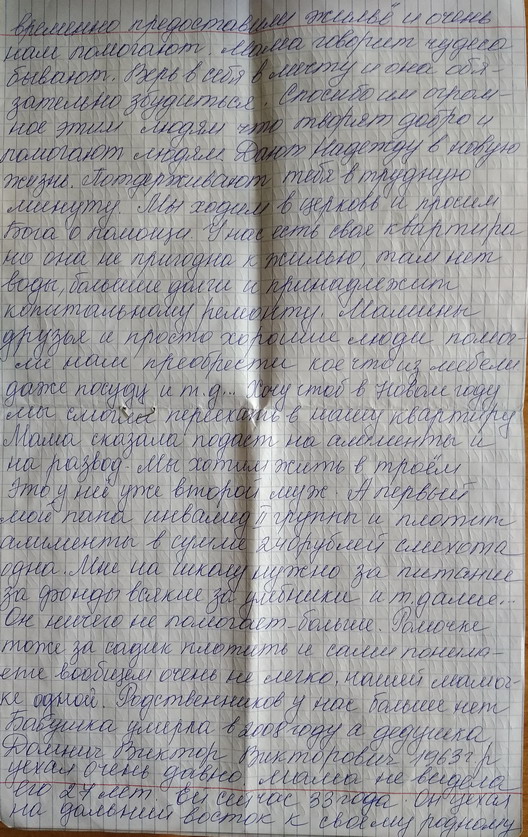 временно предоставили жильё и очень
нам помогают. Мама говорит чудеса
бывают. Верь в себя в мечту и она обя-
зательно збудиться. Спосибо им огром-
ное этим людям что творят добро и
помогают людям. Дают Надежду в новую
жизнь. Потдерживают тебя в трудную
минуту. Мы ходим в церковь и просим
Бога о помощи. У нас есть своя квартира
но она не пригодна к жилью, там нет
воды, большие долги и принадлежит
копитальному ремонту. Мамины
друзья и просто хорошие люди помог-
ли нам преобрести кое что из мебели
даже посуду и т.д... Хочу чтоб в Новом году
мы смогли переехать в нашу квартиру
Мама сказала подаст на алименты и
на развод. Мы хотим жить в троём
Это у неё уже второй муж. А первый
мой папа инвалид II группы и плотит
алименты в сумме 240рублей смехота
одна. Мне на школу нужно за питание
за фонды всякие за учебники и т.далие...
Он ничего не помогает больше. Ромочке
тоже за садик плотить и сами понима-
ете вообщем очень не легко, нашей мамоч-
ке одной. Родственников у нас больше нет
Бабушка умерла в 2008 году а дедушка
Домнич Виктор Викторович 1963г/р
уехал очень давно мама не видела
его 27 лет. Ей сейчас 33 года. Он уехал
на дальний восток к своему родному